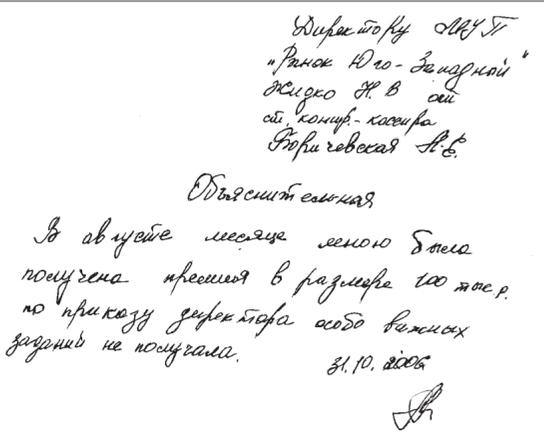 Директору ЛРУП
"Рынок Юго-Западный"
Жидко Н.В от
ст. контр.-кассира
Боричевская Н.Е.
Объяснительная
В августе месяце мною была
получена премия в размере 100 тыс.р.
по приказу директора особо важных
заданий не получала.
31.10.2006